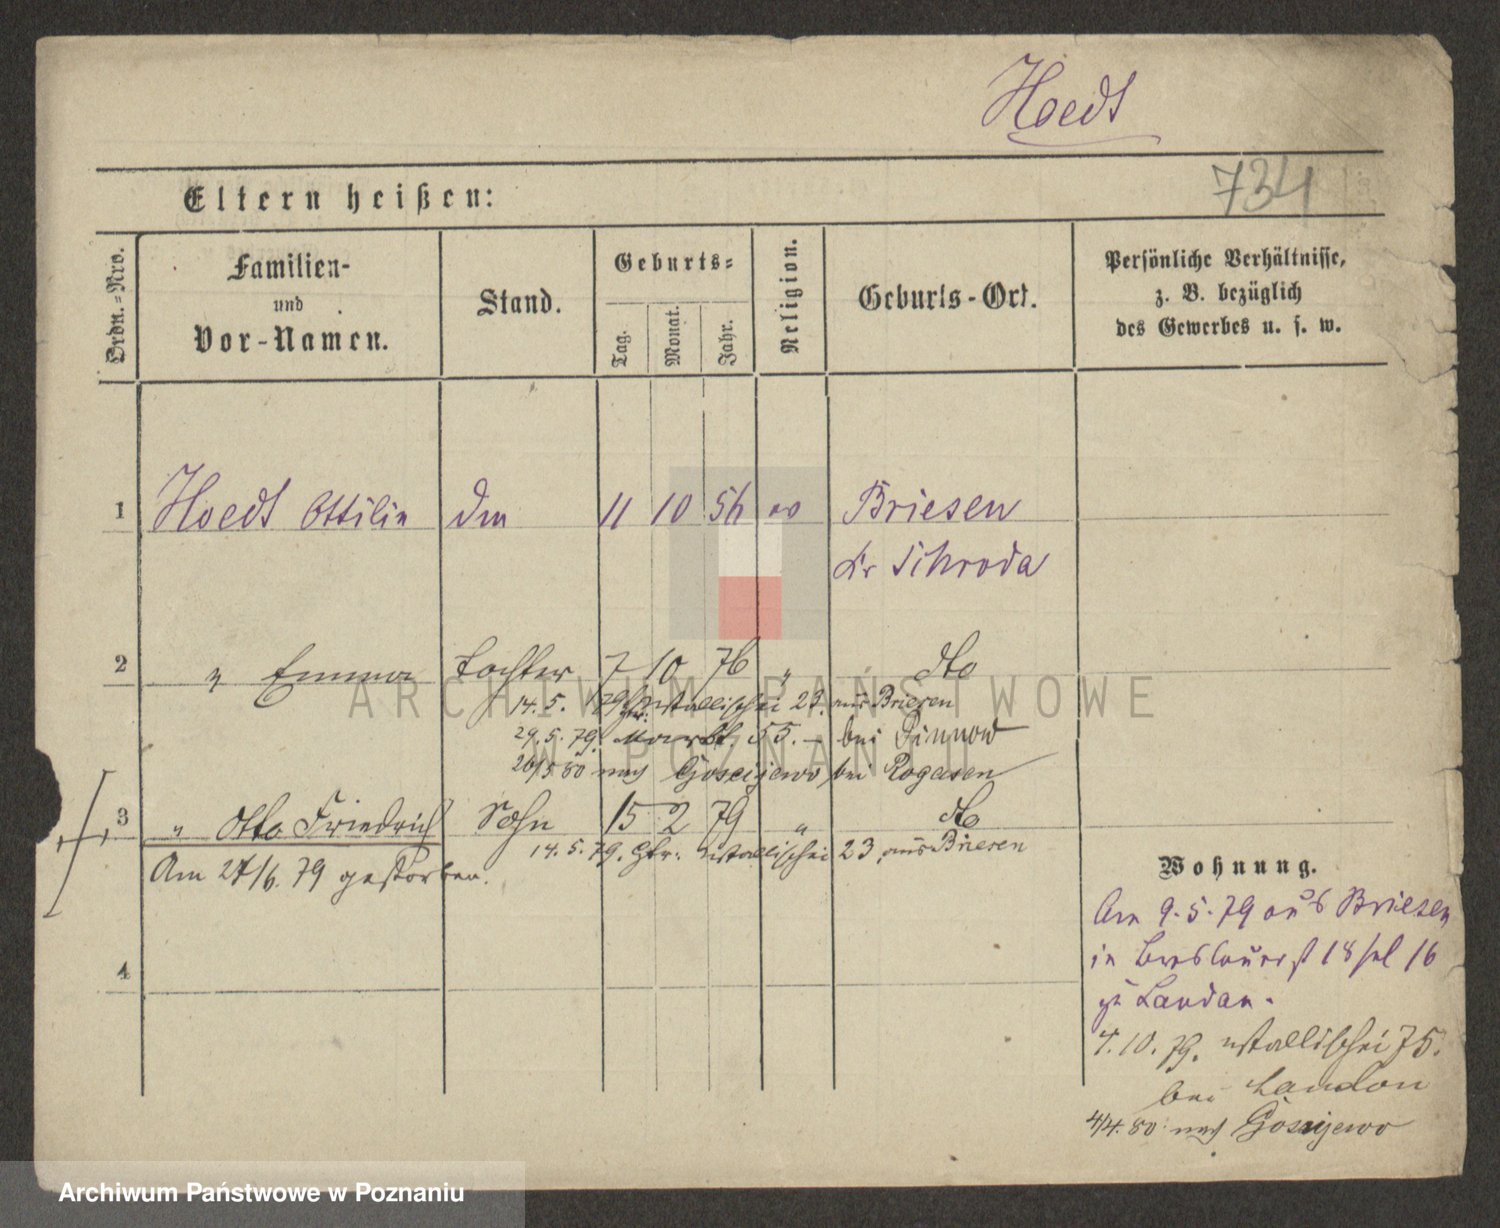 Hoedt
734
Eltern heißen:
Ordn.-Nro.
Familien-
und
Vor-Namen.
Stand.
Geburts-
Tag.
Monat.
Jahr.
Religion.
Geburts-Ort.
Persönliche Verhältnisse,
z. B. bezüglich
des Gewerbes u. s. w.
1 Hoedt Ottilie 11 10 56 Briesen
Kr Schroda
2 " Emma Tochter 7 10 76 " dto
14. 5. 79 Wallischei 23. aus Briesen
29. 5. 79. Markt 55. - bei Pinnow
26/5 80 nach Goscijewo bei Rogasen
3 " Otto Friedrich Sohn 15 2 79 " dto
14. 5. 79. Wallischei 23 aus Briesen
Am 27/6. 79 gestorben.
4
Wohnung.
Am 9. 5. 79 aus Briesen
in Breslauerst 18 16
zu Landau.
4. 10. 79. Wallischei 75.
bei Landau
4/4. 80 nach Goscijewo
ARCHIWUM PAŃSTWOWE
W POZNANIU
Archiwum Państwowe w Poznaniu